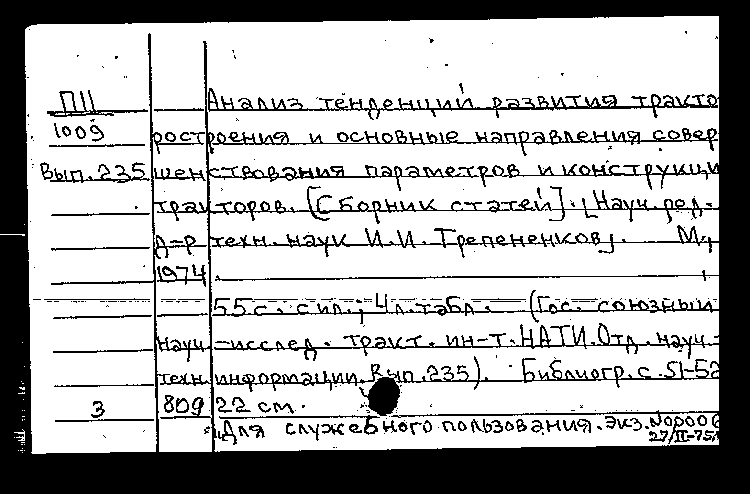 П11 Анализ тенденций развития тракто
1009 ростроения и основные направления совер
Вып. 235 шенствования параметров и конструкци
тракторов. [Сборник статей]. [Науч. ред.
д-р техн. наук И.И. Трепененков]. М.,
1974.
55 с. с ил.; 4 л. табл. (Гос. союзный
науч.-исслед. тракт. ин-т. НАТИ. Отд. науч.-
техн. информации. Вып. 235). Библиогр. с. 51-52
3 809 22 см.
Для служебного пользования. Экз. №0006
27/II-75